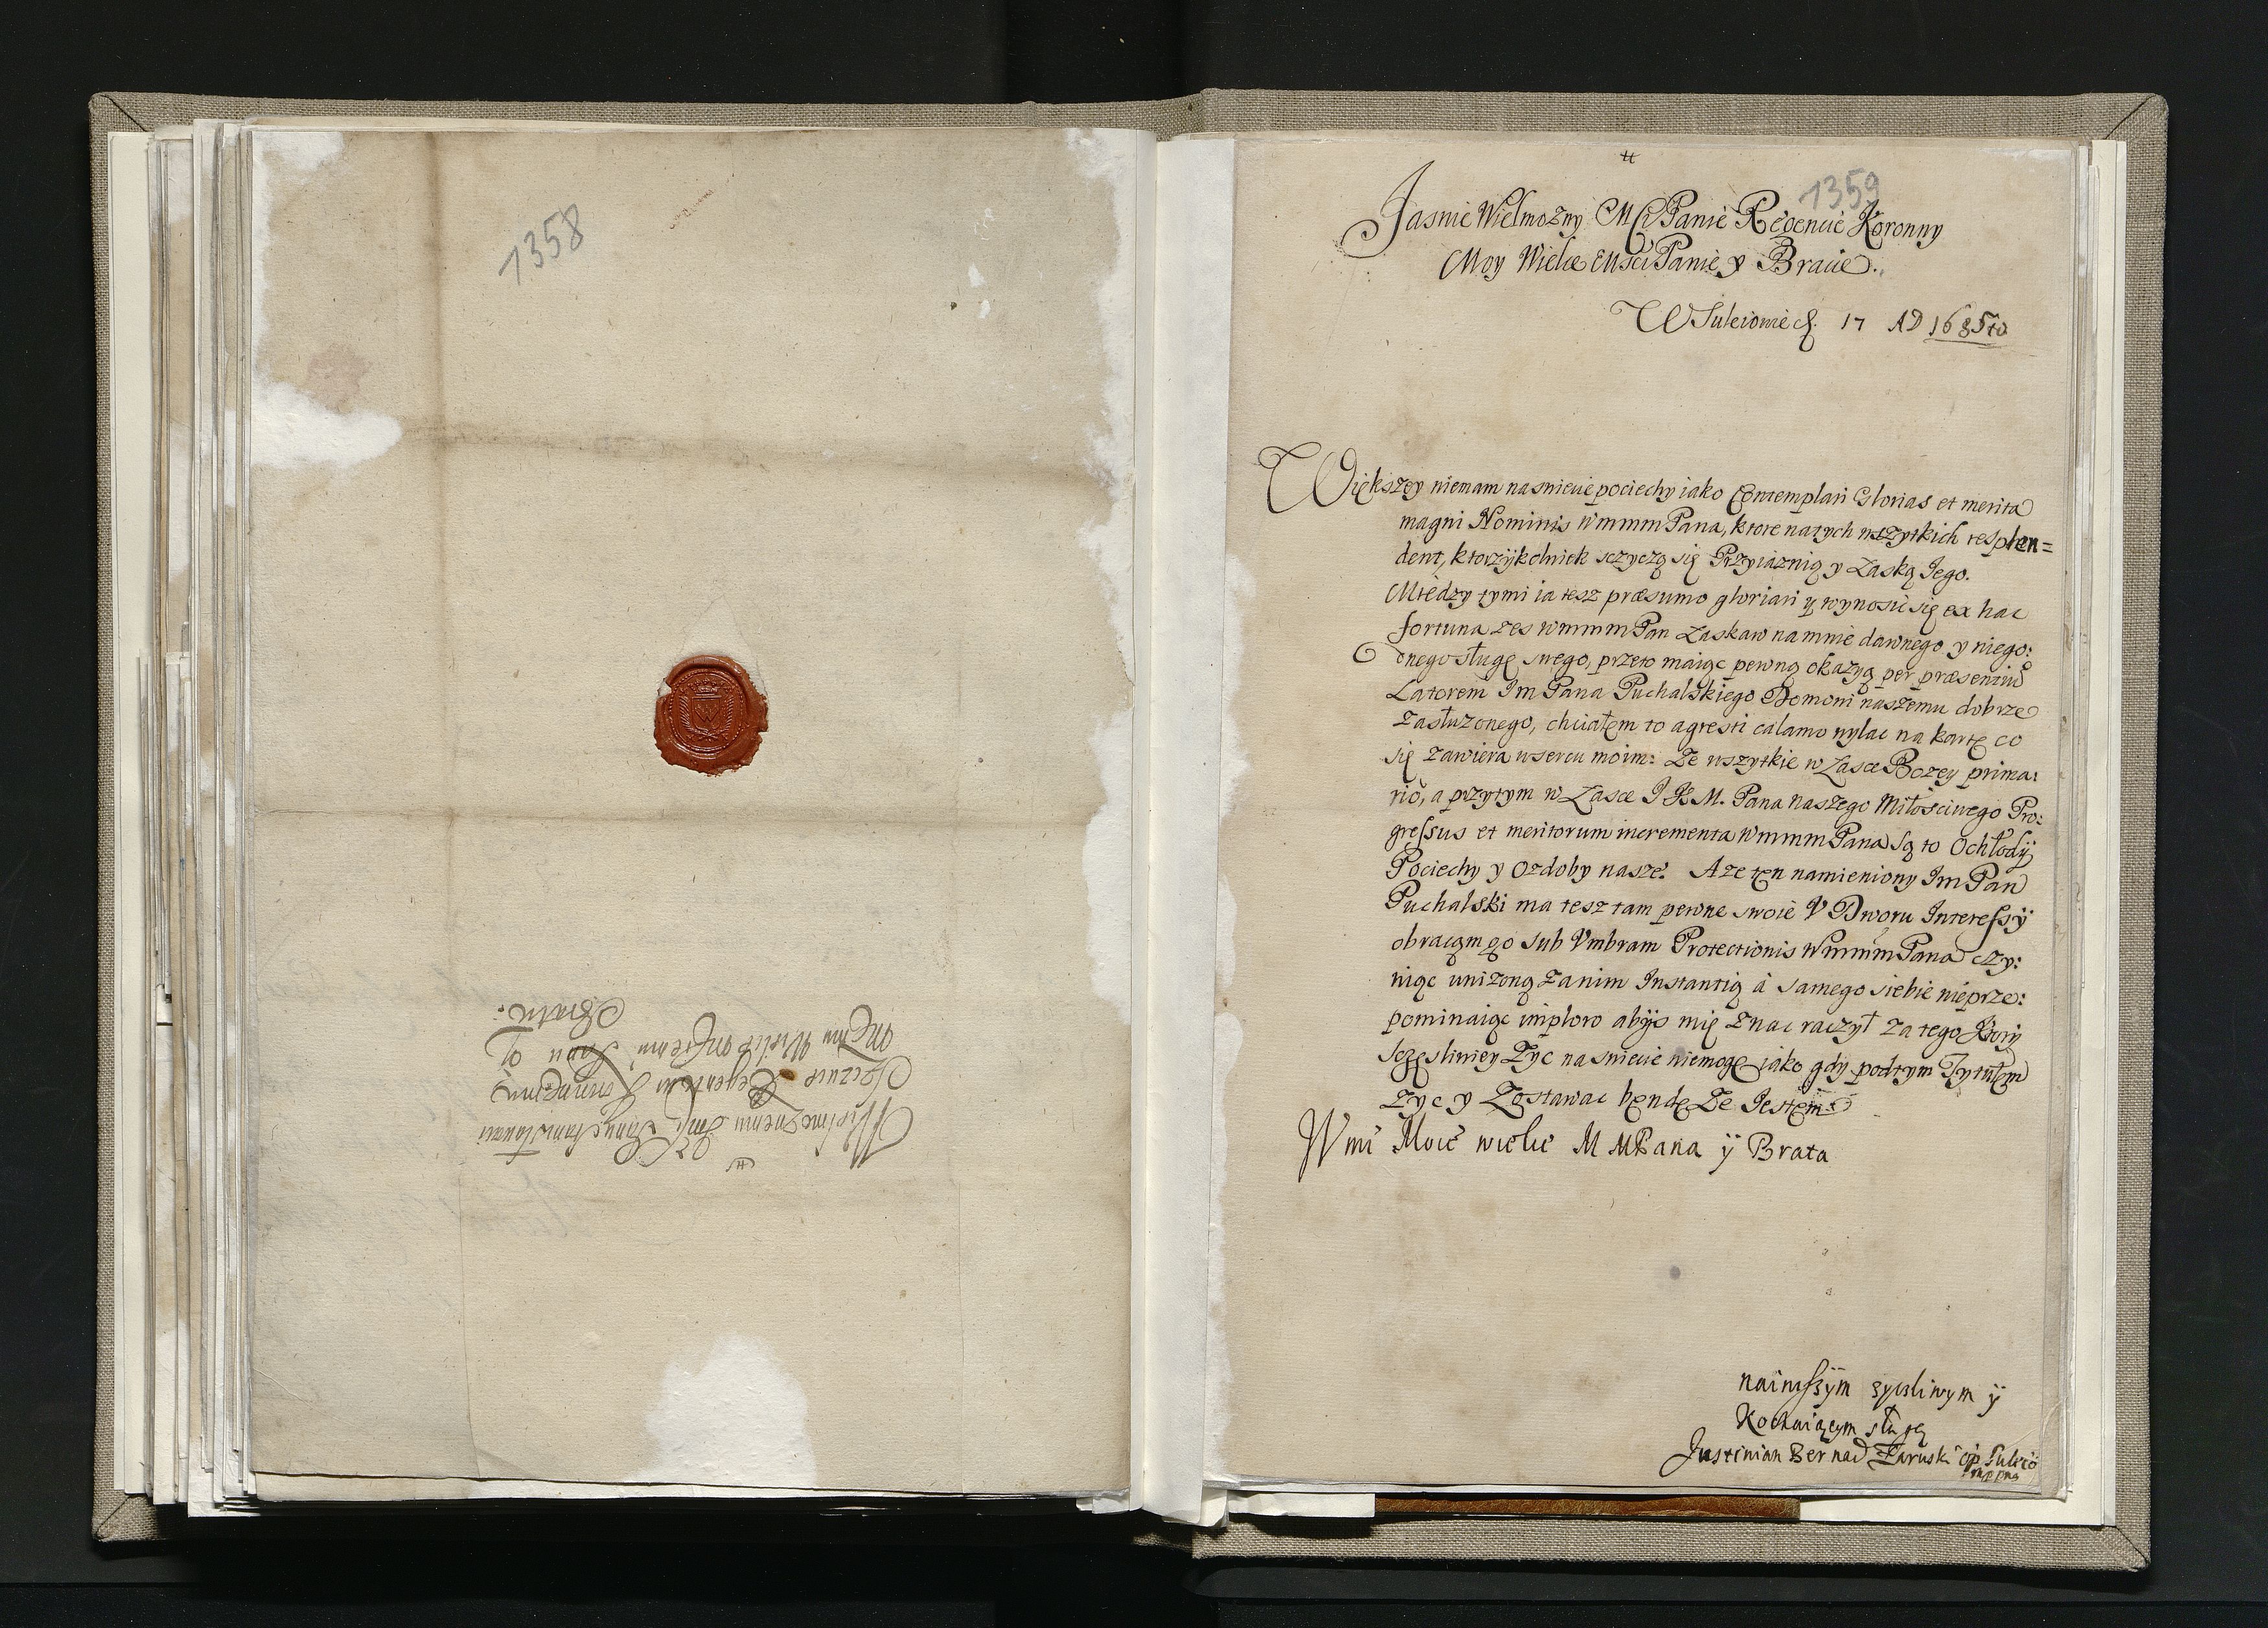 1358
Wielmoznemu Jmsci Panu Stanislawowi
Regentowi Koronnemu
Memu Wielce Msciemu Panu y
Bratu.
1359
Jasnie Wielmozny Msci Panie Regencie Koronny
Moy Wielce Msci Panie y Bracie.
W Suleiowie d. 17 AD 1685to
Większey niemam naswiecie pociechy iako Contemplari Glorias et merita
magni Nominis Wmmm Pana, ktore natych wszytkich resplen=
dent, ktorzÿkolwiek sczyczą się Przyiaznią y Łaską Jego.
Między tymi ia tesz præsumo gloriari y wynosic się ex hac
fortuna zes Wmmm Pan Łaskaw namnie dawnego y niego:
dnego sługę swego, przeto maiąc pewną okazyą per præsentiũ
Latorem Im Pana Puchalskiego Domowi naszemu dobrze
zasłuzonego, chciałem to agresti calamo wylac na kartę co
się zawiera wsercu moim: Ze wszytkie w Łasce Bozey prima:
rio, a przytym w Łasce J K M. Pana naszego Miłosciwego Pro:
gressus et meritorum incrementa Wmmm Pana są to Ochłodÿ
Pociechy y Ozdoby nasze. A ze ten namieniony Im Pan
Puchalski ma tesz tam pewne swoie V Dworu Interessÿ
obracam go sub Vmbram Protectionis Wmmm Pana czy:
niąc unizoną zanim Instantią á samego siebie nieprze:
pominaiąc imploro abÿs mię znac raczył za tego Ktory
sczęsliwiey Zyc na swiecie niemogę jako gdy podtym Tytułem
zyc y Zostawac będę Ze Jestem
Wmci Moie wielce M MPana ÿ Brata
nainisszÿm zycsliwym ÿ
Kochaiącym sługą
Justinian Bernad Zaruski op Suleio
mppria